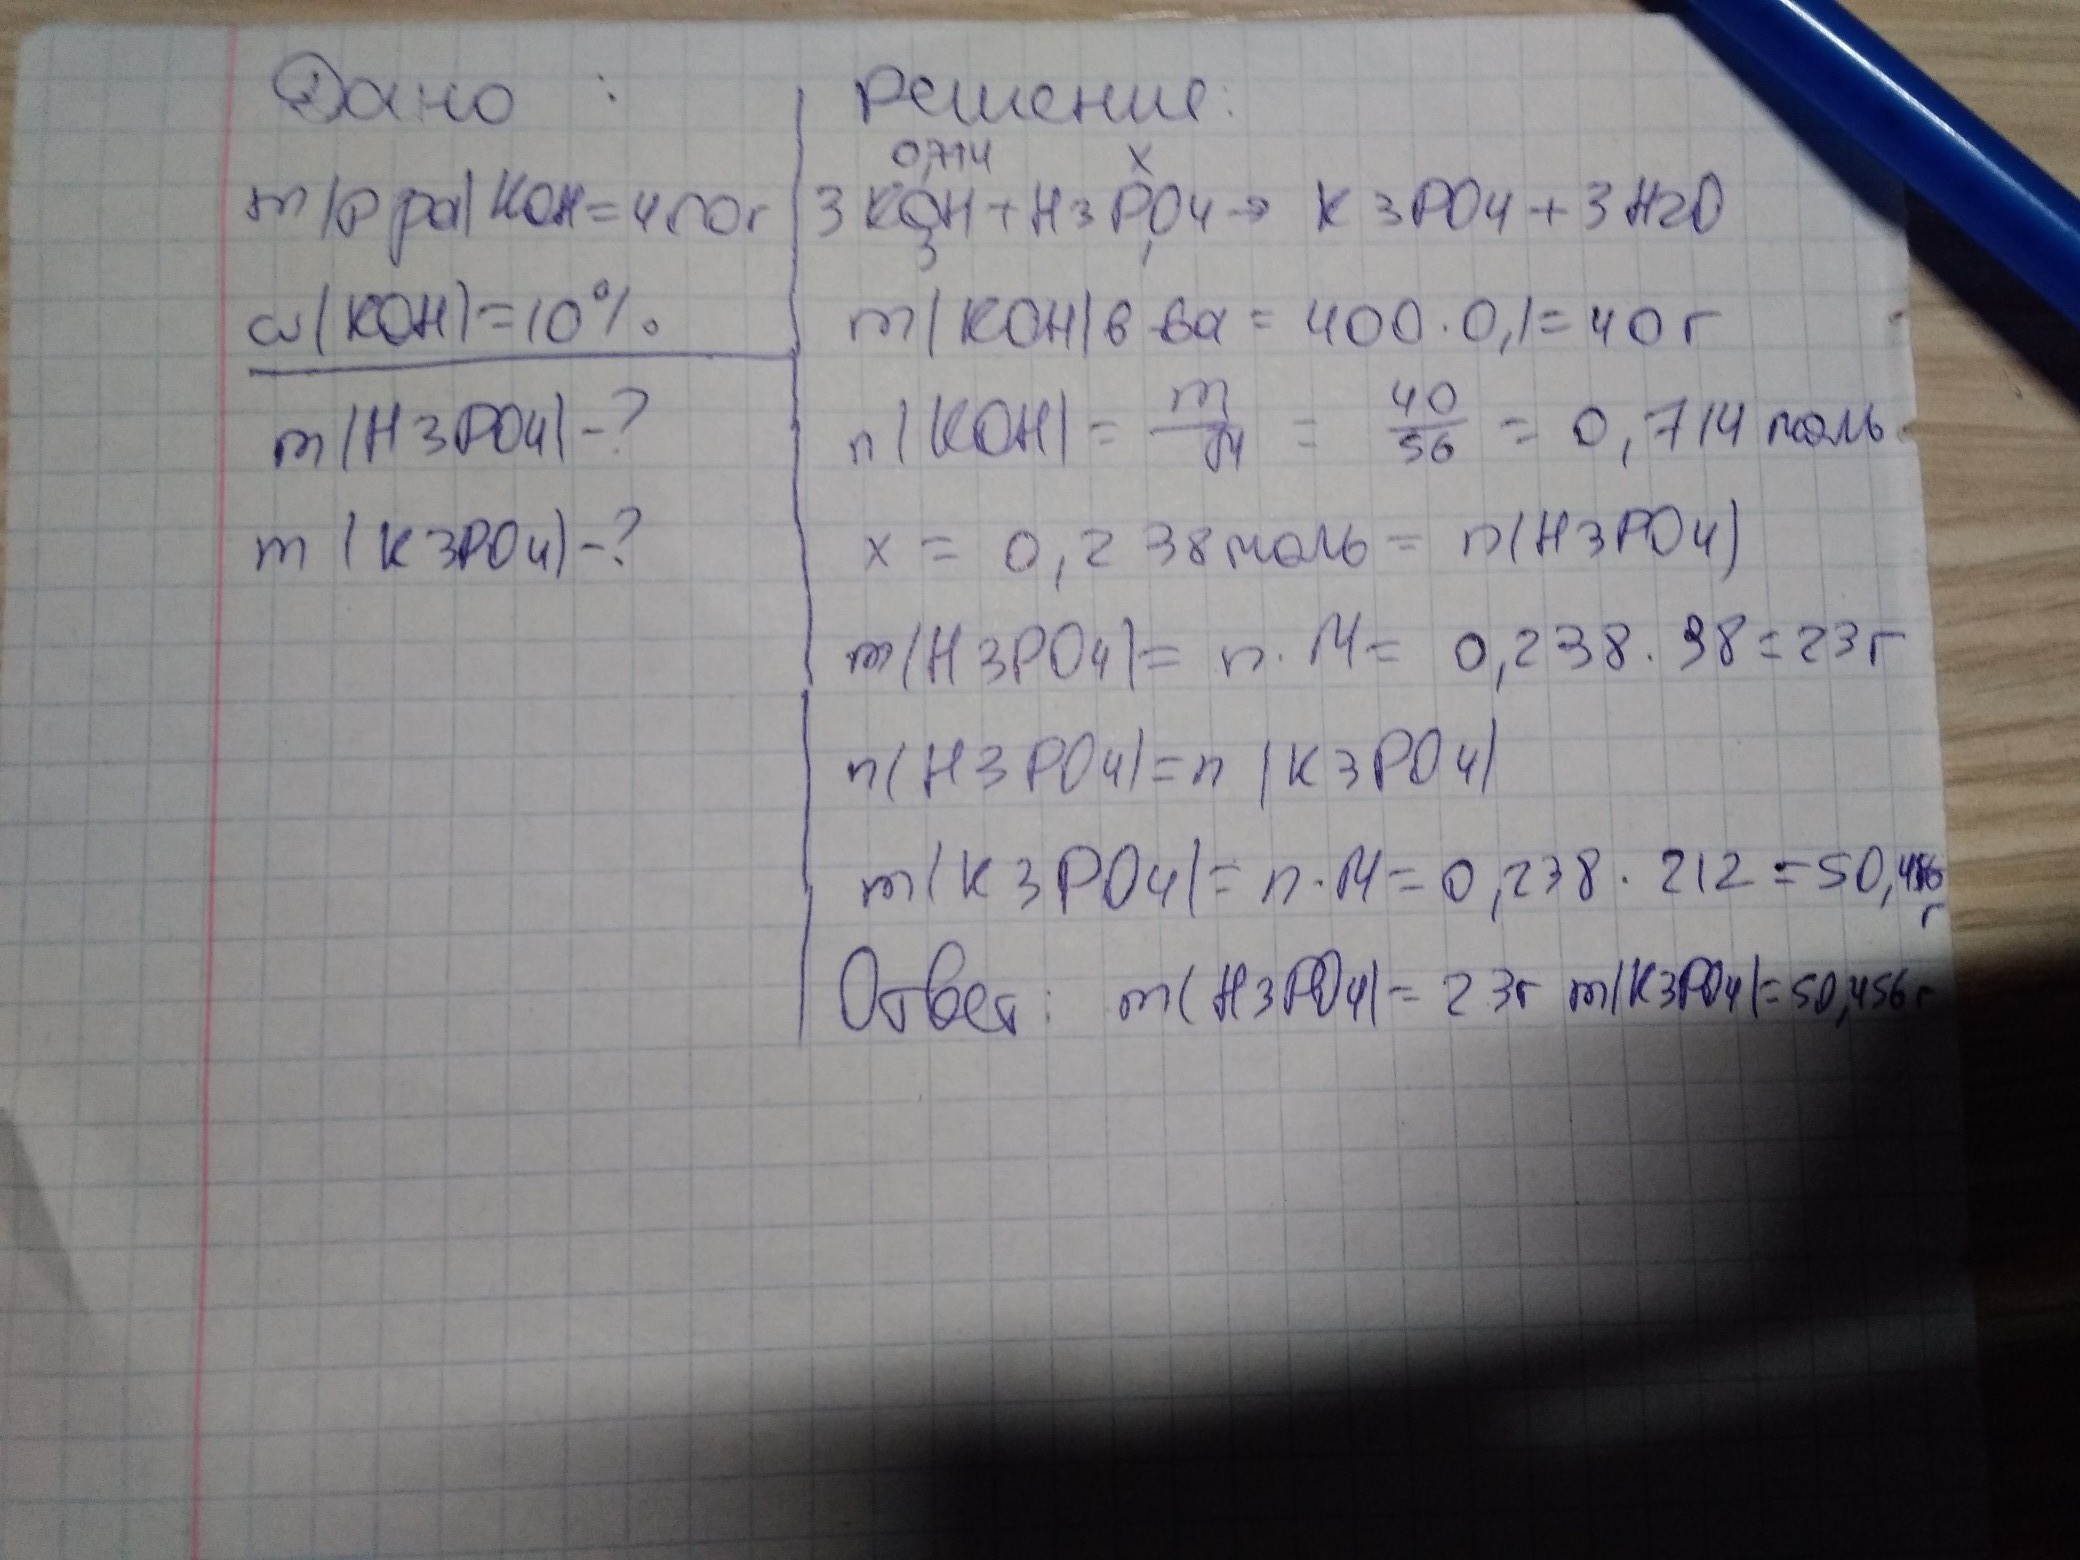 Дано :
m(р ра) KOH=400г
ω(KOH)=10%
m(H3PO4)-?
m (K3PO4)-?
Решение:
0,714 x
3KOH+H3PO4→ K3PO4+3H2O
3 1
m(KOH)в ва = 400·0,1=40г
n(KOH) = m/M = 40/56 = 0,714 моль
x = 0,238 моль = n(H3PO4)
m(H3PO4)= n·M= 0,238·98=23г
n(H3PO4)=n (K3PO4)
m(K3PO4)=n·M=0,238·212=50,456 г
Ответ: m(H3PO4)= 23г m(K3PO4)=50,456г